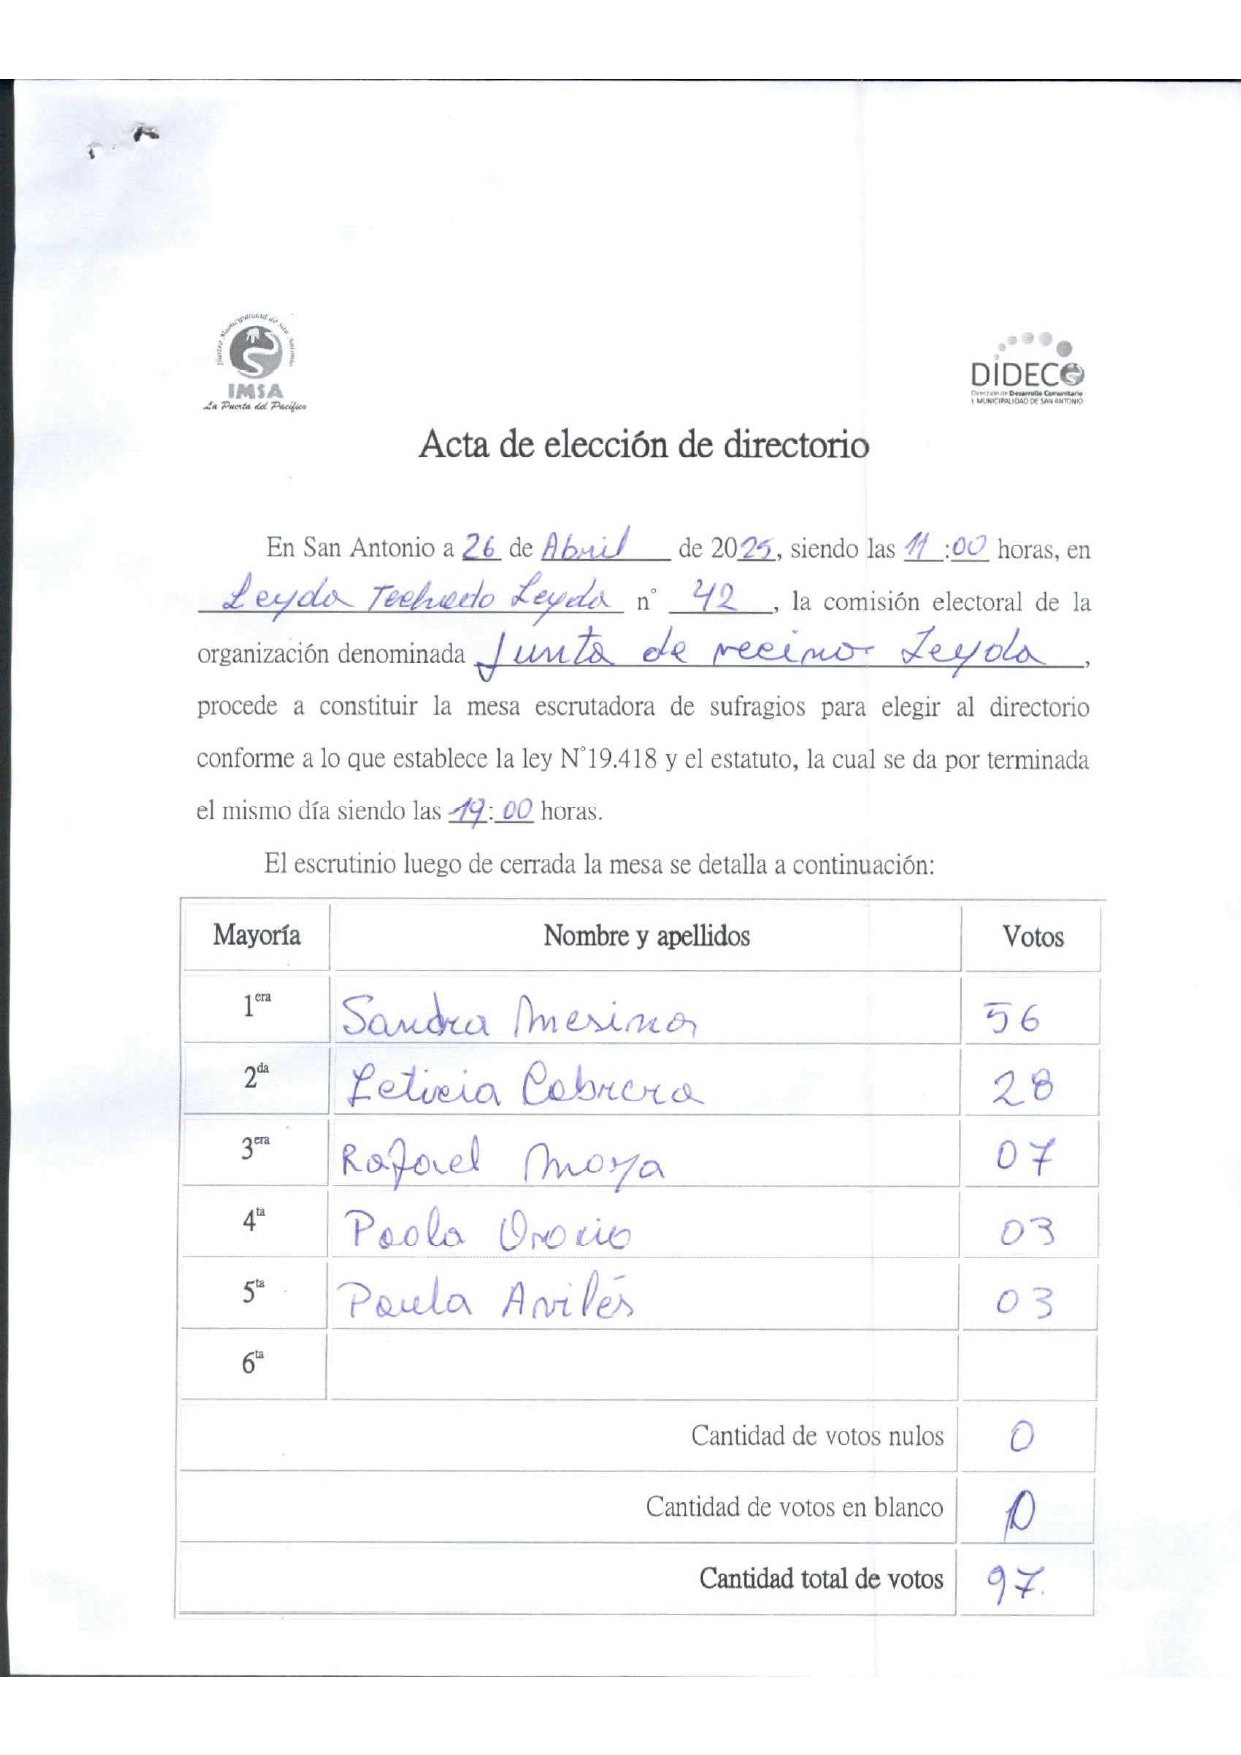 Ilustre Municipalidad de San Antonio
IMSA
La Puerta del Pacífico
DIDECO
Dirección de Desarrollo Comunitario
I. MUNICIPALIDAD DE SAN ANTONIO
Acta de elección de directorio
En San Antonio a 26 de Abril de 2025, siendo las 11:00 horas, en
Leyda Leyda n° 42, la comisión electoral de la
organización denominada Junta de vecinos Leyda,
procede a constituir la mesa escrutadora de sufragios para elegir al directorio
conforme a lo que establece la ley N°19.418 y el estatuto, la cual se da por terminada
el mismo día siendo las 19:00 horas.
El escrutinio luego de cerrada la mesa se detalla a continuación:
Mayoría Nombre y apellidos Votos
1era Sandra Mesinas 56
2da Leticia Cabrera 28
3era Rafael Moya 07
4ta Paola Orocio 03
5ta Paula Avilés 03
6ta
Cantidad de votos nulos 0
Cantidad de votos en blanco 0
Cantidad total de votos 97.